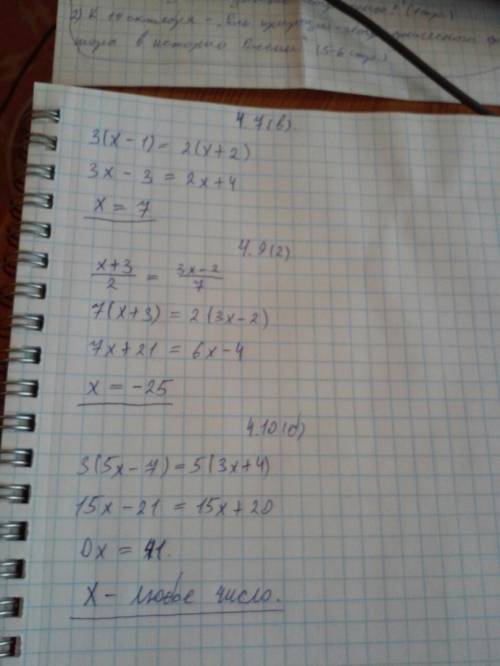 2) К 14 октября - "Вло природно-географического фа
тора в истории России" (5-6 стр.)
4.7(в).
3(x - 1) = 2(x + 2)
3x - 3 = 2x + 4
x = 7
4.9(г)
x+3/2 = 3x-2/7
7(x+3) = 2(3x-2)
7x + 21 = 6x - 4
x = -25
4.10(б)
3(5x - 7) = 5(3x + 4)
15x - 21 = 15x + 20
0x = 41.
x - любое число.